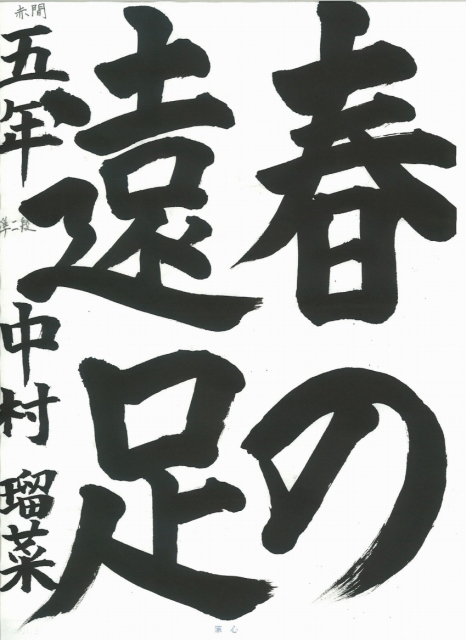 春の
遠足
赤間
五年 中村 瑠菜
準二段
筆心